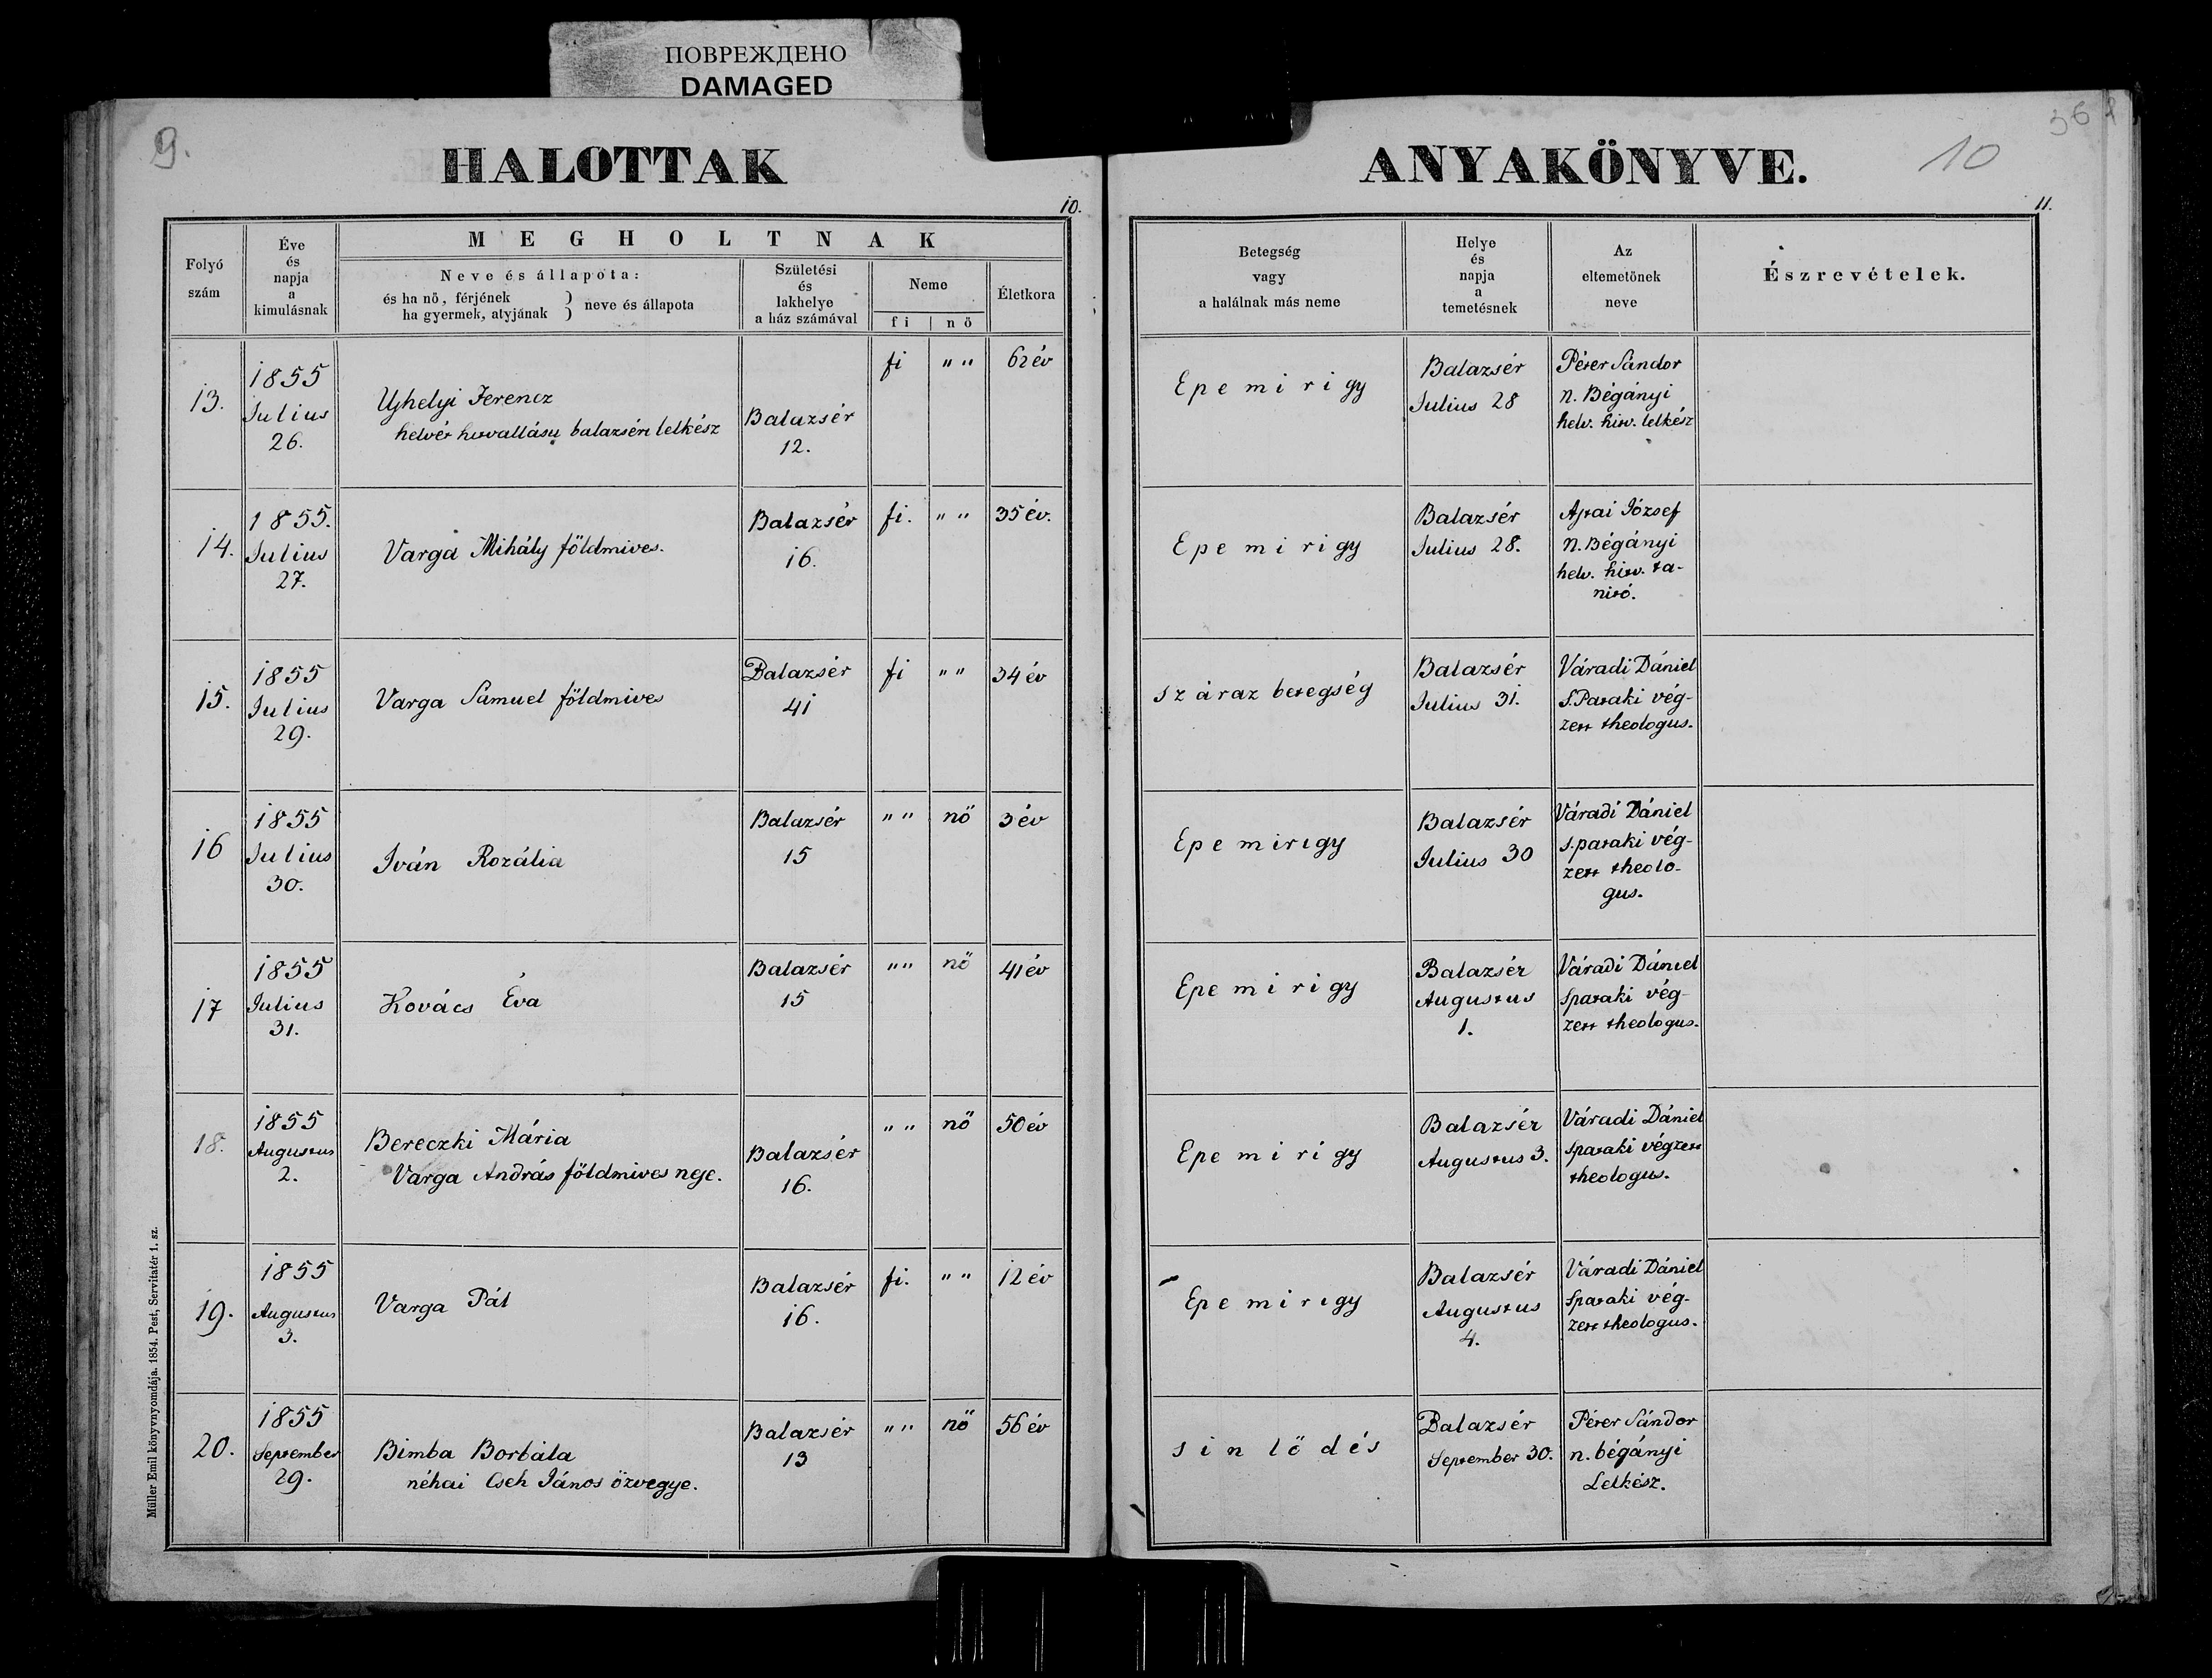 ПОВРЕЖДЕНО
DAMAGED
9.
HALOTTAK
10.
Folyó
szám
Éve
és
napja
a
kimulásnak
MEGHOLTNAK
Neve és állapota:
és ha nö, férjének
ha gyermek, atyjának } neve és állapota
Születési
és
lakhelye
a ház számával
Neme
fi | nö
Életkora
13.
1855
Julius
26.
Ujhelyi Ferencz
helvét hitvallásu balazséri lelkész
Balazsér
12.
fi
" "
62 év
14.
1855.
Julius
27.
Varga Mihály földmives.
Balazsér
16.
fi.
" "
35 év.
15.
1855
Julius
29.
Varga Samuel földmives
Balazsér
41
fi
" "
34 év
16
1855
Julius
30.
Iván Rozália
Balazsér
15
" "
nő
3 év
17
1855
Julius
31.
Kovács Éva
Balazsér
15
" "
nő
41 év
18.
1855
Augustus
2.
Bereczki Mária
Varga András földmives neje.
Balazsér
16.
" "
nő
50 év
19.
1855
Augustus
3.
Varga Pál
Balazsér
16.
fi.
" "
12 év
20.
1855
September
29.
Bimba Borbála
néhai Cseh János özvegye.
Balazsér
13
" "
nő
56 év
Müller Emil könyvnyomdája. 1854. Pest, Servitatér 1. sz.
ANYAKÖNYVE.
10
11.
Betegség
vagy
a halálnak más neme
Helye
és
napja
a
temetésnek
Az
eltemetönek
neve
Észrevételek.
Epemirigy
Balazsér
Julius 28
Péter Sándor
n. Bégányi
helv. hitv. lelkész
Epemirigy
Balazsér
Julius 28.
József
N. Bégányi
helv. hitv. ta-
nitó.
száraz betegség
Balazsér
Julius 31.
Váradi Dániel
S. Pataki vég-
zett theologus.
Epemirigy
Balazsér
Julius 30
Váradi Dániel
s. pataki vég-
zett theolo-
gus.
Epemirigy
Balazsér
Augustus
1.
Váradi Dániel
Spataki vég-
zett theologus.
Epemirigy
Balazsér
Augustus 3.
Váradi Dániel
Spataki végzett
theologus.
Epemirigy
Balazsér
Augustus
4.
Váradi Dániel
Spataki vég-
zett theologus.
sinlődés
Balazsér
September 30.
Péter Sándor
n. bégányi
Lelkész.